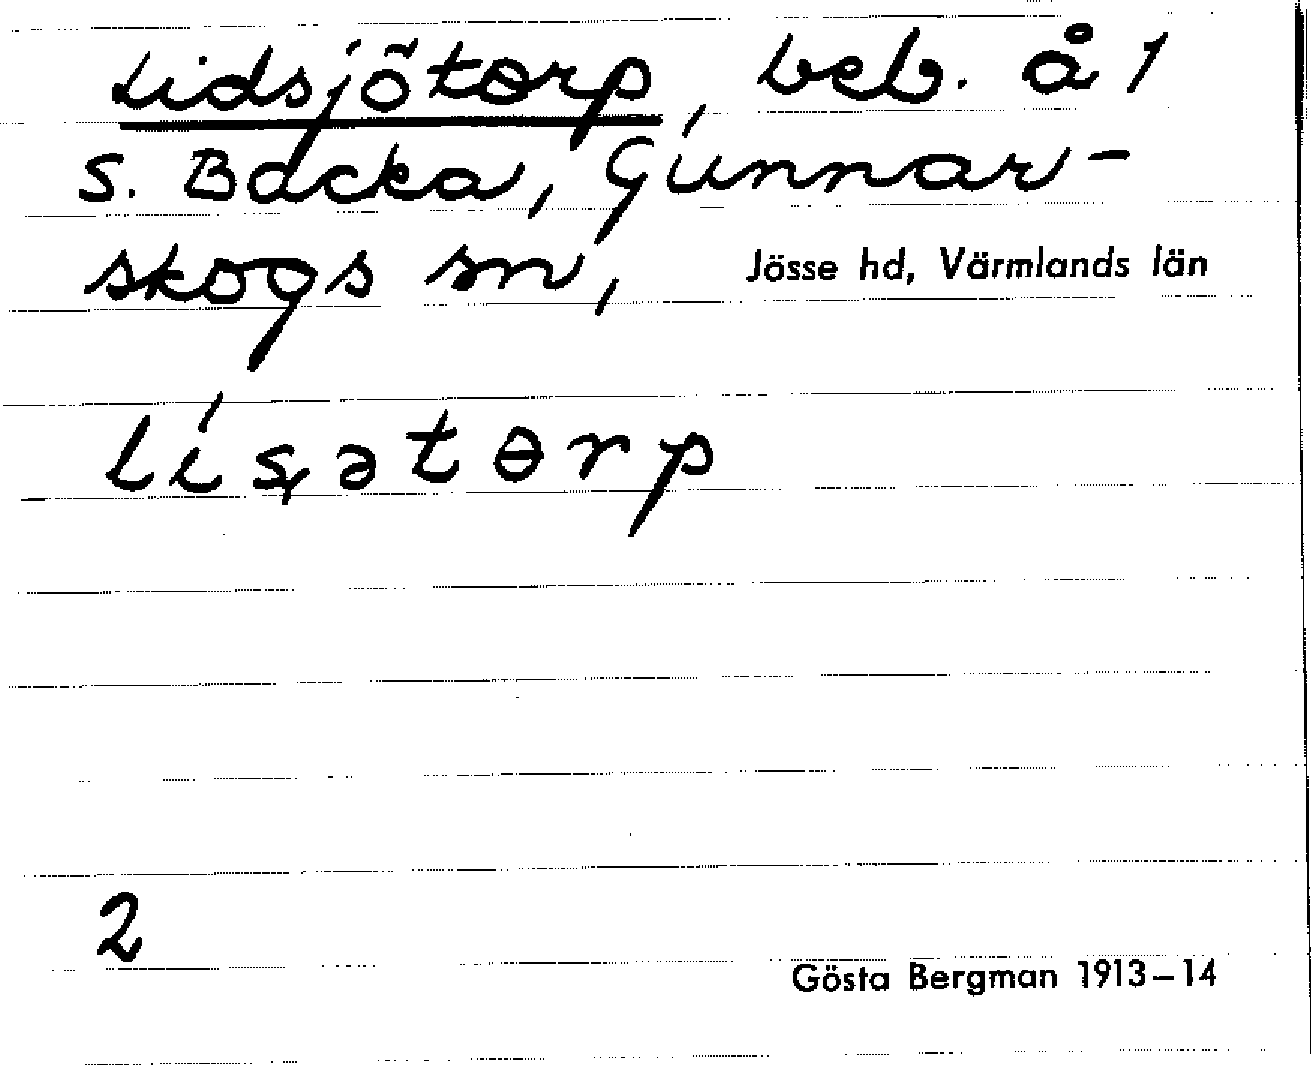 Lidsjötorp, beb. å 1
S. Backa, Gunnar-
skogs sn, Jösse hd, Värmlands län
lísatɵrp
2
Gösta Bergman 1913–14